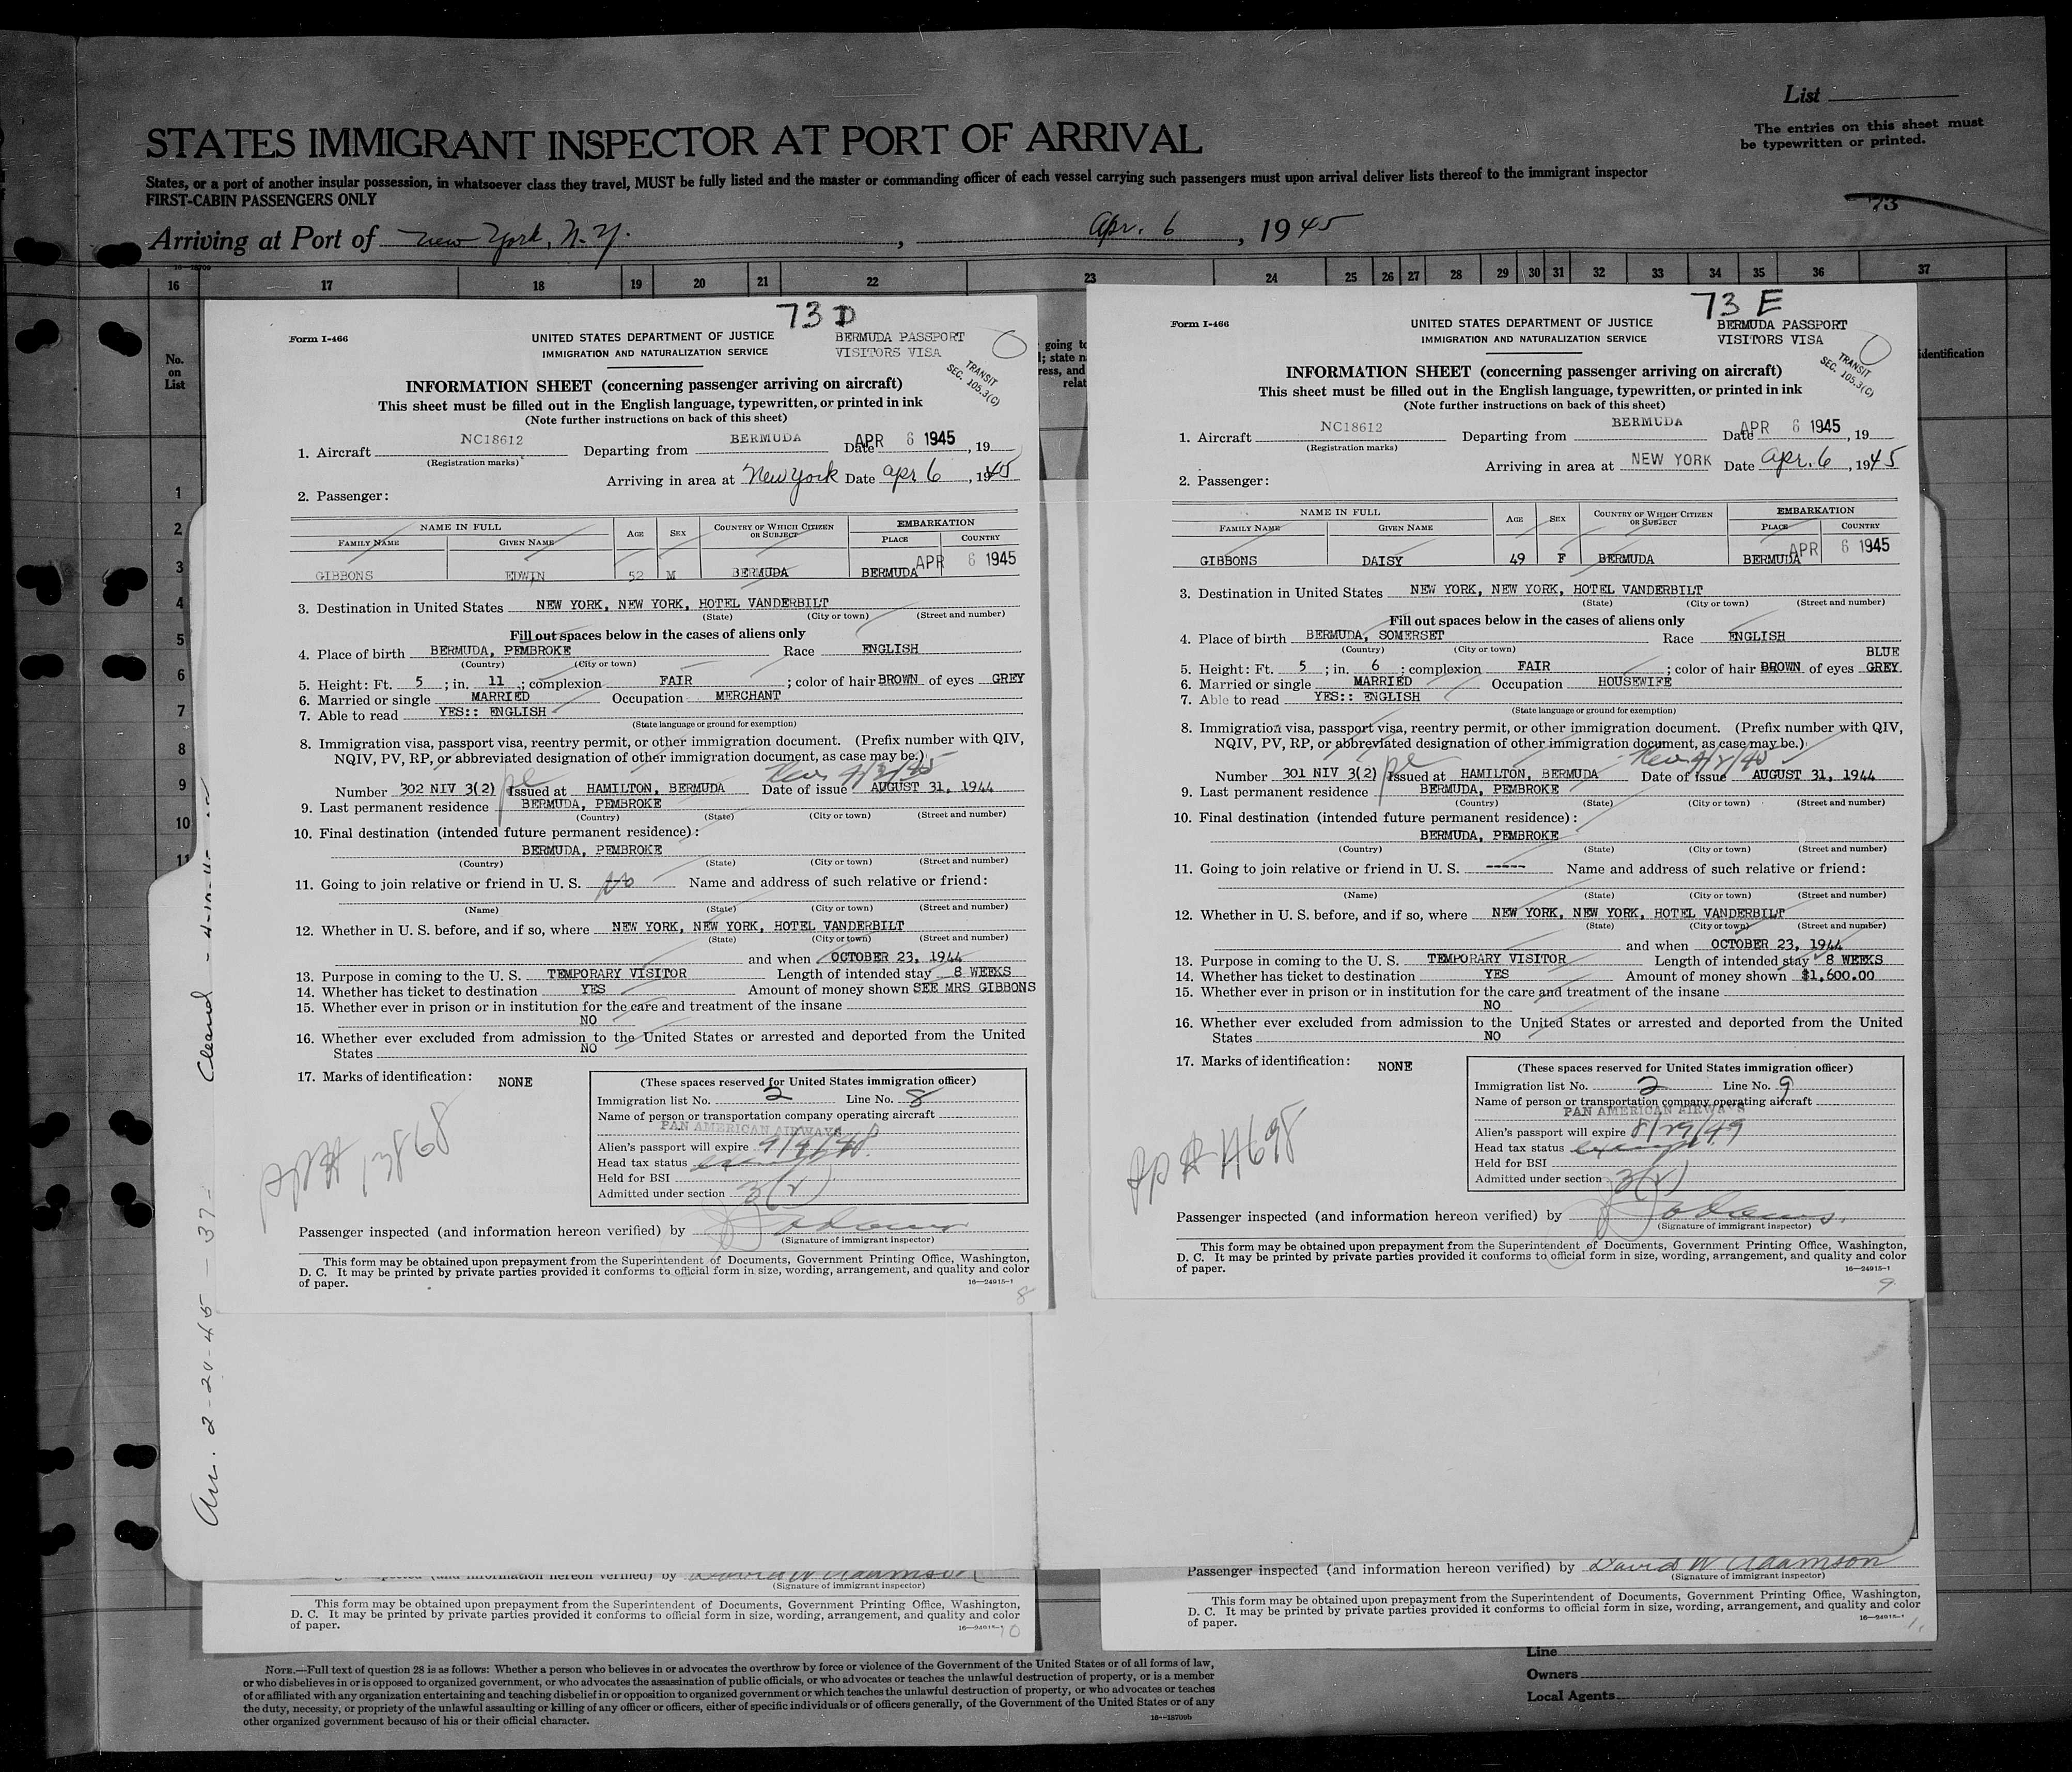 List
The entries on this sheet must
be typewritten or printed.
STATES IMMIGRANT INSPECTOR AT PORT OF ARRIVAL
States, or a port of another insular possession, in whatsoever class they travel, MUST be fully listed and the master or commanding officer of each vessel carrying such passengers must upon arrival deliver lists thereof to the immigrant inspector
FIRST-CABIN PASSENGERS ONLY
73
Arriving at Port of New York, N.Y. , Apr. 6 , 1945
16 17 18 19 20 21 22 23 24 25 26 27 28 29 30 31 32 33 34 35 36 37
No.
on
List
going to
identification
1
2
3
4
5
6
7
8
9
10
11
Arr. 2-20-45 - 37 -
Cleared
73 D
Form I-466
UNITED STATES DEPARTMENT OF JUSTICE
IMMIGRATION AND NATURALIZATION SERVICE
BERMUDA PASSPORT
VISITORS VISA
TRANSIT
SEC. 105.3(C)
INFORMATION SHEET (concerning passenger arriving on aircraft)
This sheet must be filled out in the English language, typewritten, or printed in ink
(Note further instructions on back of this sheet)
1. Aircraft NC18612 Departing from BERMUDA Date APR 6 1945, 19
(Registration marks)
Arriving in area at New York Date Apr 6, 1945
2. Passenger:
NAME IN FULL AGE SEX COUNTRY OF WHICH CITIZEN OR SUBJECT EMBARKATION
FAMILY NAME GIVEN NAME PLACE COUNTRY
GIBBONS EDWIN 52 M BERMUDA BERMUDA APR 6 1945
3. Destination in United States NEW YORK, NEW YORK, HOTEL VANDERBILT
(State) (City or town) (Street and number)
Fill out spaces below in the cases of aliens only
4. Place of birth BERMUDA, PEMBROKE Race ENGLISH
(Country) (City or town)
5. Height: Ft. 5 ; in. 11 ; complexion FAIR ; color of hair BROWN of eyes GREY
6. Married or single MARRIED Occupation MERCHANT
7. Able to read YES:: ENGLISH
(State language or ground for exemption)
8. Immigration visa, passport visa, reentry permit, or other immigration document. (Prefix number with QIV,
NQIV, PV, RP, or abbreviated designation of other immigration document, as case may be.)
Number 302 NIV 3(2) Issued at HAMILTON, BERMUDA Date of issue AUGUST 31, 1944
9. Last permanent residence BERMUDA, PEMBROKE
(Country) (State) (City or town) (Street and number)
10. Final destination (intended future permanent residence):
BERMUDA, PEMBROKE
(Country) (State) (City or town) (Street and number)
11. Going to join relative or friend in U. S. No Name and address of such relative or friend:
(Name) (State) (City or town) (Street and number)
12. Whether in U. S. before, and if so, where NEW YORK, NEW YORK, HOTEL VANDERBILT
(State) (City or town) (Street and number)
and when OCTOBER 23, 1944
13. Purpose in coming to the U. S. TEMPORARY VISITOR Length of intended stay 8 WEEKS
14. Whether has ticket to destination YES Amount of money shown SEE MRS GIBBONS
15. Whether ever in prison or in institution for the care and treatment of the insane
NO
16. Whether ever excluded from admission to the United States or arrested and deported from the United
States NO
17. Marks of identification: NONE
(These spaces reserved for United States immigration officer)
Immigration list No. 2 Line No. 8
Name of person or transportation company operating aircraft
PAN AMERICAN AIRWAYS
Alien's passport will expire
Head tax status
Held for BSI
Admitted under section 3(2)
13868
Passenger inspected (and information hereon verified) by
(Signature of immigrant inspector)
This form may be obtained upon prepayment from the Superintendent of Documents, Government Printing Office, Washington,
D. C. It may be printed by private parties provided it conforms to official form in size, wording, arrangement, and quality and color
of paper.
16—24915-1
8
73 E
Form I-466
UNITED STATES DEPARTMENT OF JUSTICE
IMMIGRATION AND NATURALIZATION SERVICE
BERMUDA PASSPORT
VISITORS VISA
TRANSIT
SEC. 105.3(C)
INFORMATION SHEET (concerning passenger arriving on aircraft)
This sheet must be filled out in the English language, typewritten, or printed in ink
(Note further instructions on back of this sheet)
1. Aircraft NC18612 Departing from BERMUDA Date APR 6 1945, 19
(Registration marks)
Arriving in area at NEW YORK Date Apr. 6, 1945
2. Passenger:
NAME IN FULL AGE SEX COUNTRY OF WHICH CITIZEN OR SUBJECT EMBARKATION
FAMILY NAME GIVEN NAME PLACE COUNTRY
GIBBONS DAISY 49 F BERMUDA BERMUDA APR 6 1945
3. Destination in United States NEW YORK, NEW YORK, HOTEL VANDERBILT
(State) (City or town) (Street and number)
Fill out spaces below in the cases of aliens only
4. Place of birth BERMUDA, SOMERSET Race ENGLISH
(Country) (City or town)
BLUE
5. Height: Ft. 5 ; in. 6 ; complexion FAIR ; color of hair BROWN of eyes GREY
6. Married or single MARRIED Occupation HOUSEWIFE
7. Able to read YES:: ENGLISH
(State language or ground for exemption)
8. Immigration visa, passport visa, reentry permit, or other immigration document. (Prefix number with QIV,
NQIV, PV, RP, or abbreviated designation of other immigration document, as case may be.)
Number 301 NIV 3(2) Issued at HAMILTON, BERMUDA Date of issue AUGUST 31, 1944
9. Last permanent residence BERMUDA, PEMBROKE
(Country) (State) (City or town) (Street and number)
10. Final destination (intended future permanent residence):
BERMUDA, PEMBROKE
(Country) (State) (City or town) (Street and number)
11. Going to join relative or friend in U. S. ----- Name and address of such relative or friend:
(Name) (State) (City or town) (Street and number)
12. Whether in U. S. before, and if so, where NEW YORK, NEW YORK, HOTEL VANDERBILT
(State) (City or town) (Street and number)
and when OCTOBER 23, 1944
13. Purpose in coming to the U. S. TEMPORARY VISITOR Length of intended stay 8 WEEKS
14. Whether has ticket to destination YES Amount of money shown $1,600.00
15. Whether ever in prison or in institution for the care and treatment of the insane
NO
16. Whether ever excluded from admission to the United States or arrested and deported from the United
States NO
17. Marks of identification: NONE
(These spaces reserved for United States immigration officer)
Immigration list No. 2 Line No. 9
Name of person or transportation company operating aircraft
PAN AMERICAN AIRWAYS
Alien's passport will expire 8/29/49
Head tax status exempt
Held for BSI
Admitted under section 3(2)
Passenger inspected (and information hereon verified) by
(Signature of immigrant inspector)
This form may be obtained upon prepayment from the Superintendent of Documents, Government Printing Office, Washington,
D. C. It may be printed by private parties provided it conforms to official form in size, wording, arrangement, and quality and color
of paper.
16—24915-1
9
(Signature of immigrant inspector)
This form may be obtained upon prepayment from the Superintendent of Documents, Government Printing Office, Washington,
D. C. It may be printed by private parties provided it conforms to official form in size, wording, arrangement, and quality and color
of paper.
10
Passenger inspected (and information hereon verified) by David W Adamson
(Signature of immigrant inspector)
This form may be obtained upon prepayment from the Superintendent of Documents, Government Printing Office, Washington,
D. C. It may be printed by private parties provided it conforms to official form in size, wording, arrangement, and quality and color
of paper.
NOTE.—Full text of question 28 is as follows: Whether a person who believes in or advocates the overthrow by force or violence of the Government of the United States or of all forms of law,
or who disbelieves in or is opposed to organized government, or who advocates the assassination of public officials, or who advocates or teaches the unlawful destruction of property, or is a member
of or affiliated with any organization entertaining and teaching disbelief in or opposition to organized government or which teaches the unlawful destruction of property, or who advocates or teaches
the duty, necessity, or propriety of the unlawful assaulting or killing of any officer or officers, either of specific individuals or of officers generally, of the Government of the United States or of any
other organized government because of his or their official character.
16—18709b
Line
Owners
Local Agents